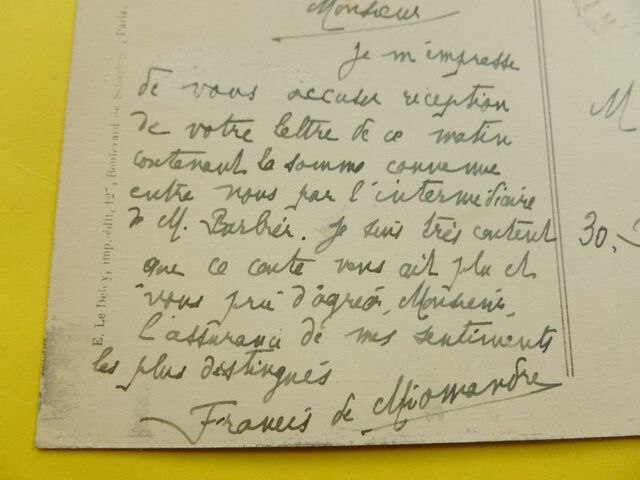 Monsieur
Je m'empresse
de vous accuser réception
de votre lettre de ce matin
contenant la somme convenue
entre nous par l'intermédiaire
de M. Barbier. Je suis très content
que ce conte vous ait plu et
vous prie d'agréer, Monsieur,
l'assurance de mes sentiments
les plus distingués
Francis de Miomandre
M
30.
E. Le Deley, imp.-édit, 127, Boulevard de Sébastopol, Paris.